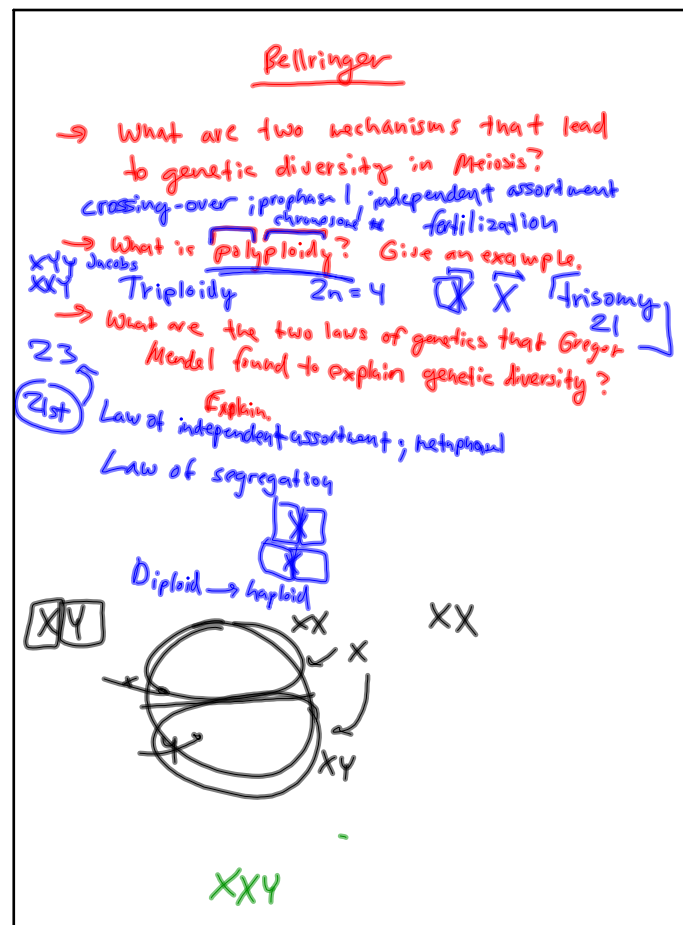 Bellringer
→ What are two mechanisms that lead
to genetic diversity in Meiosis?
crossing-over ; prophase 1, independent assortment
fertilization
→ What is polyploidy? Give an example.
XYY Jacobs
XXY Triploidy 2n = 4 X X Trisomy
21
→ What are the two laws of genetics that Gregor
Mendel found to explain genetic diversity?
23
21st
Explain.
Law of independent assortment ;
Law of segregation
X
X
Diploid → haploid
X Y
XX
XX
X
X
Y
XY
XXY